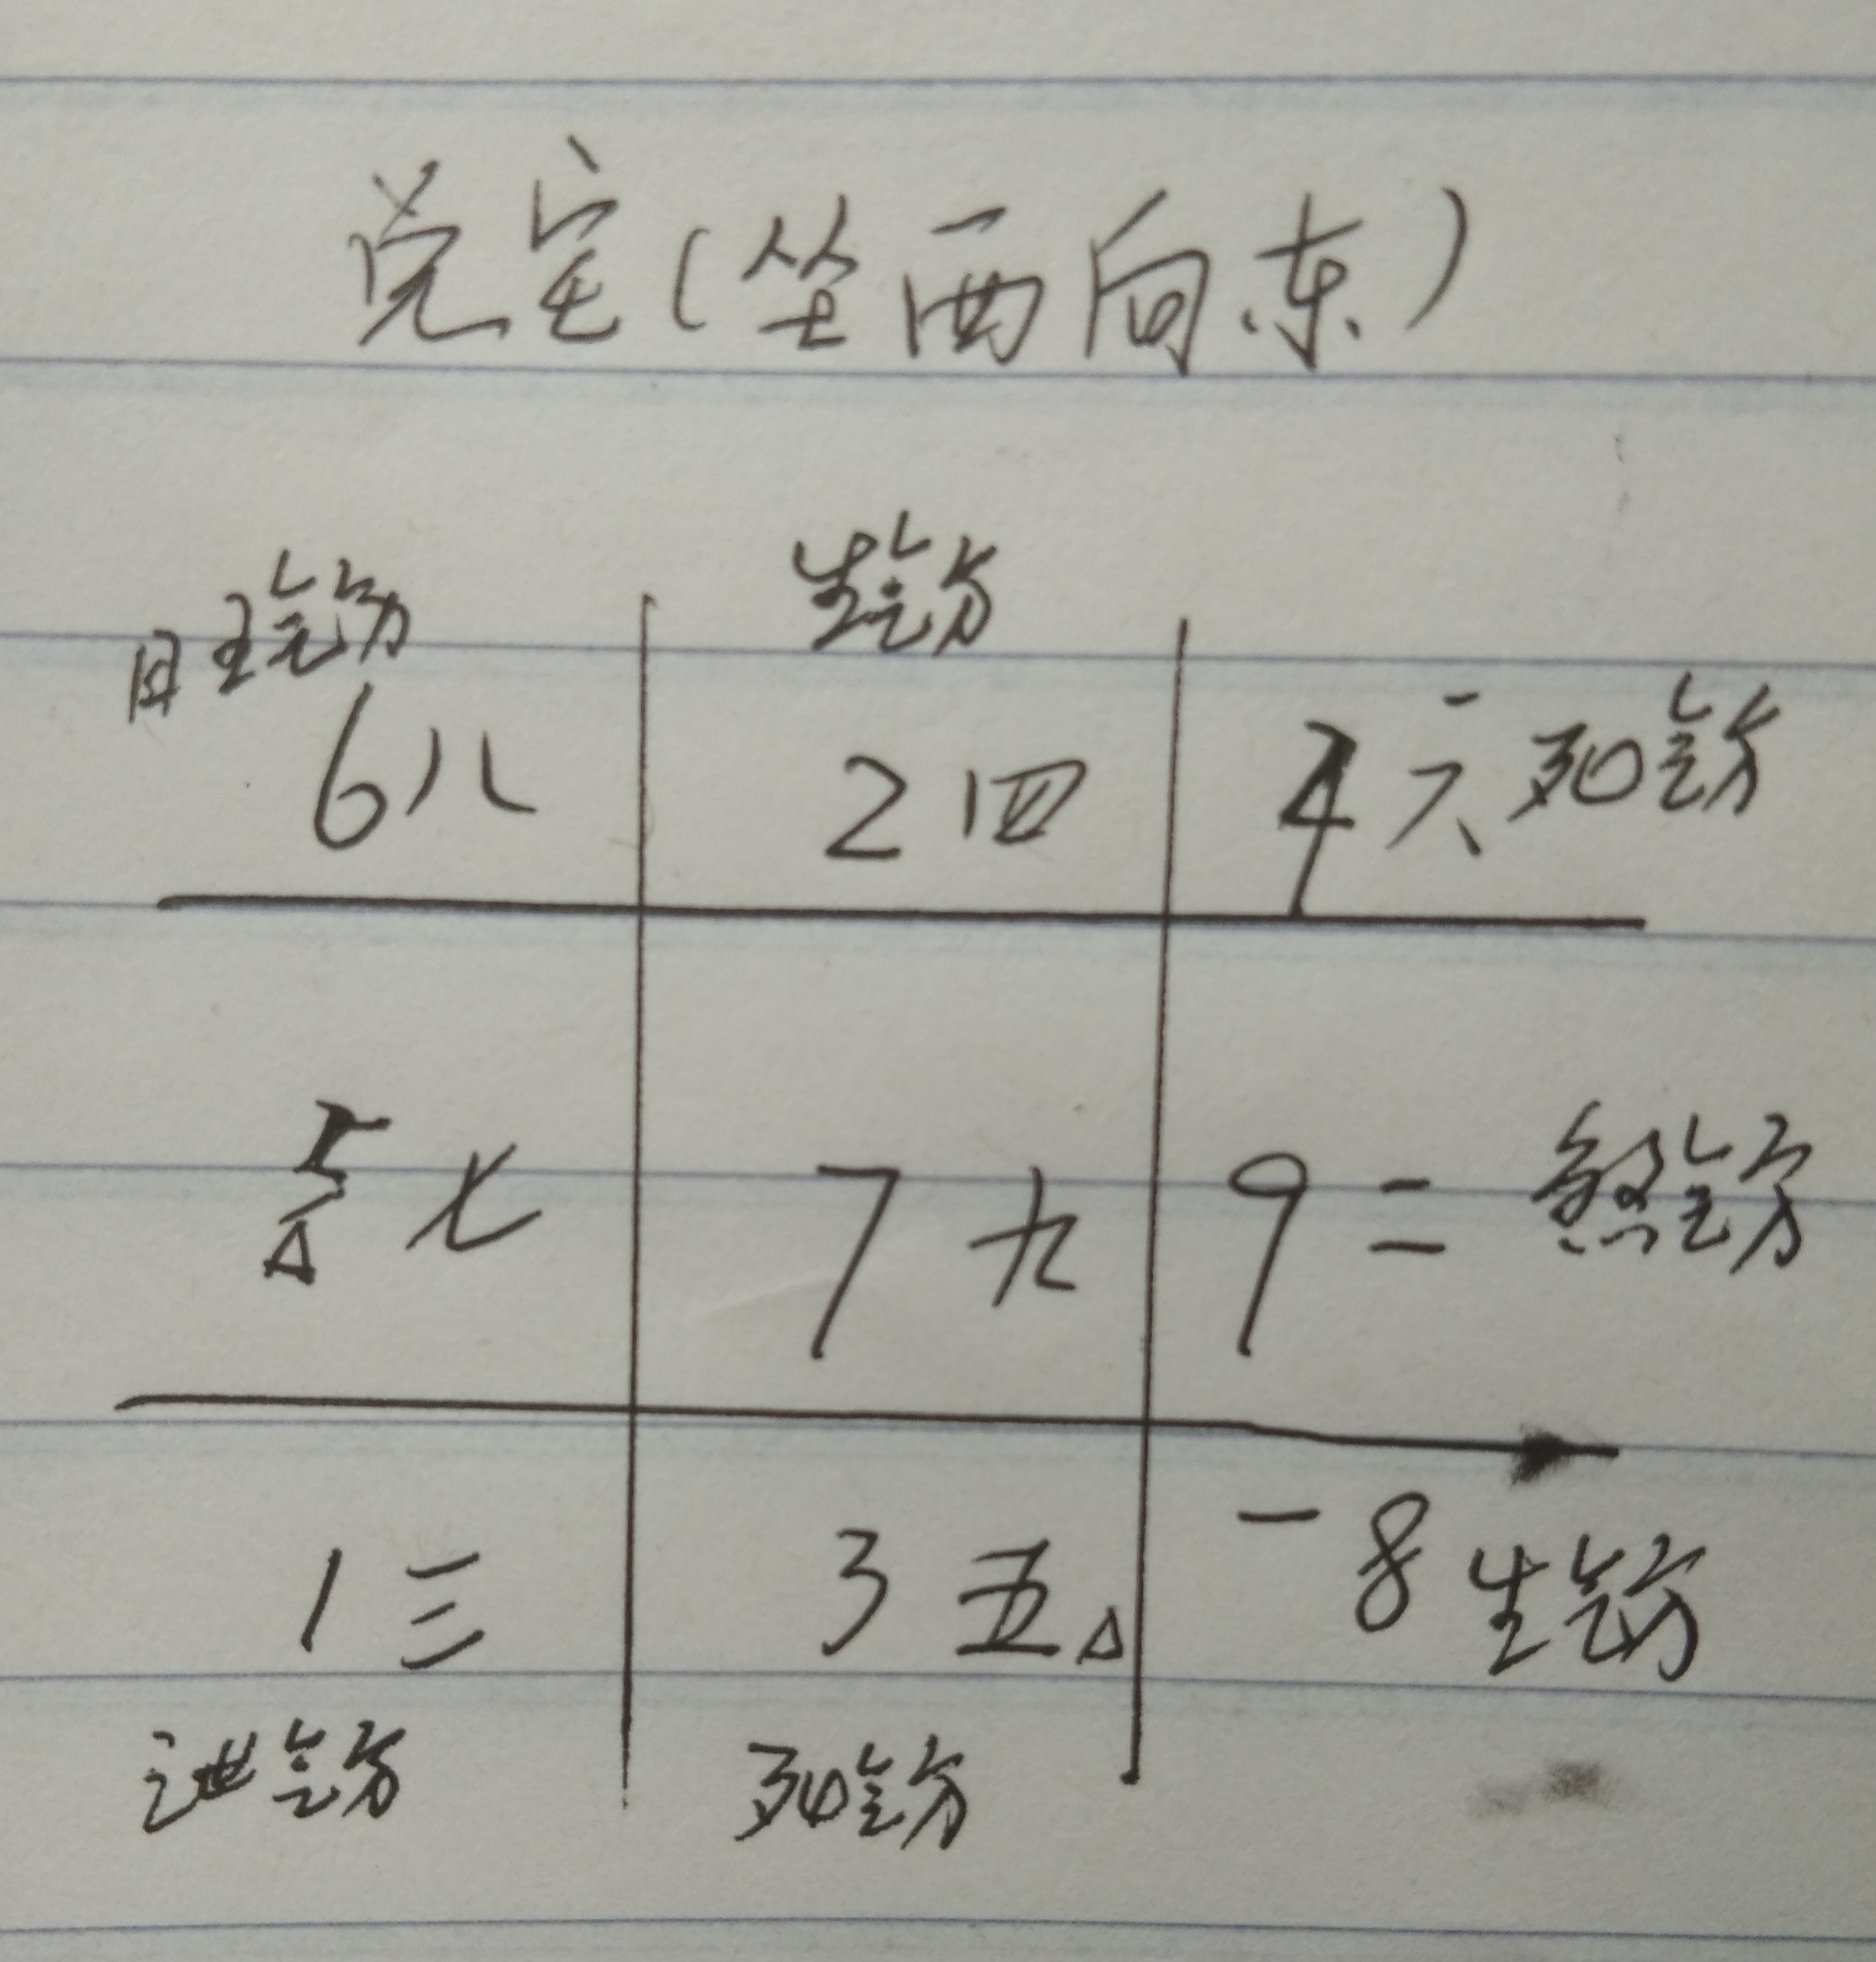 兑宅(坐西向东)
旺气方 生气方
6八 2四 4六 死气方
5七 7九 9二 煞气方
1三 3五 一8 生气方
泄气方 死气方